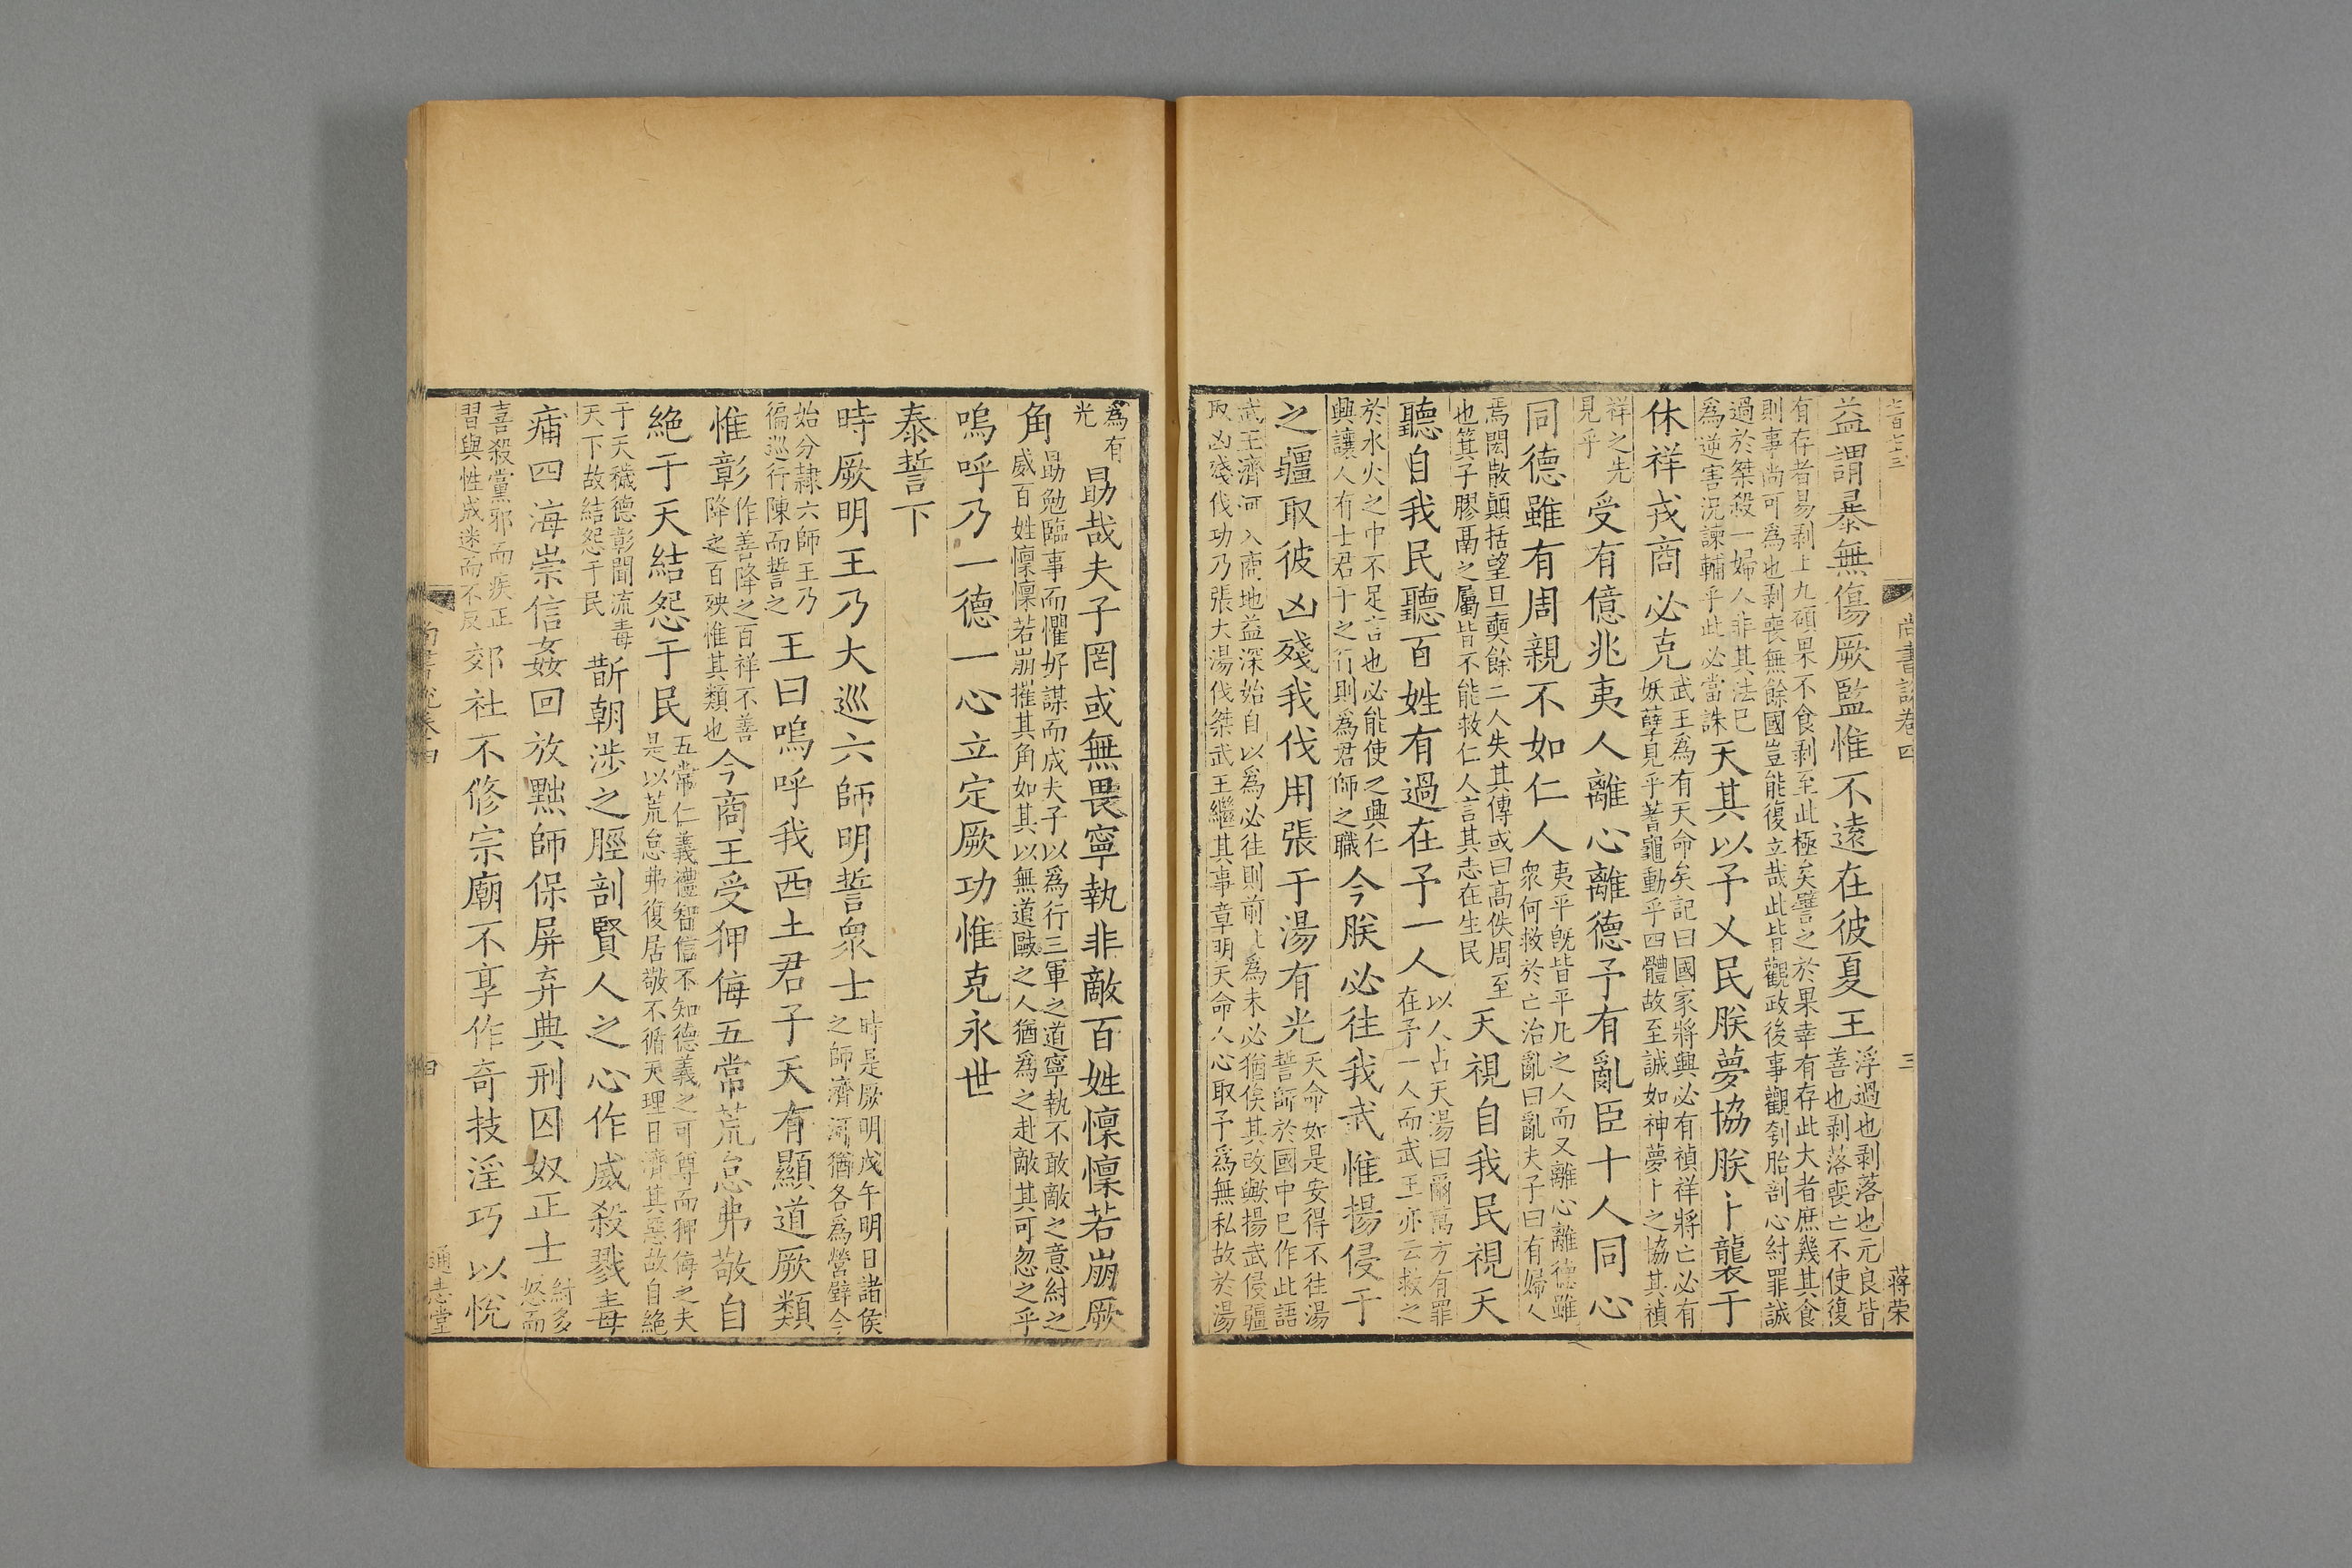 尚書說卷四 三 蒋荣
益謂暴無傷厥監惟不遠在彼夏王浮過也剥落也元良皆善也剥落喪亡不使復
有存者易剥上九碩果不食剥至此極矣譬之於果幸有存此大者庶幾其食則事尚可爲也剥喪無餘國豈能復立哉此皆觀政後事觀刳胎剖心紂罪誠
過於桀殺一婦人非其法已爲逆害況諫輔乎此必當誅天其以予乂民朕夢協朕卜襲于
休祥戎商必克武王爲有天命矣記曰國家將興必有禎祥將亡必有妖孽見乎蓍龜動乎四體故至誠如神夢卜之協其禎
祥之先見乎受有億兆夷人離心離德予有亂臣十人同心
同德雖有周親不如仁人夷平旣皆平凡之人而又離心離德雖衆何救於亡治亂曰亂夫子曰有婦人
焉閎散顛括望旦奭餘二人失其傳或曰高佚周至也箕子膠鬲之屬皆不能救仁人言其志在生民天視自我民視天
聽自我民聽百姓有過在予一人以人占天湯曰爾萬方有罪在予一人而武王亦云救之
於水火之中不足言也必能使之興仁興讓人有士君子之行則爲君師之職今朕必往我武惟揚侵于
之疆取彼凶殘我伐用張于湯有光天命如是安得不往湯誓師於國中巳作此語
武王濟河入商地益深始自以爲必往則前此爲未必猶俟其改歟揚武侵疆取凶殘伐功乃張大湯伐桀武王繼其事章明天命人心取予爲無私故於湯
爲有光勗哉夫子罔或無畏寧執非敵百姓懍懍若崩厥
角勗勉臨事而懼好謀而成夫子以爲行三軍之道寧執不敢敵之意紂之威百姓懍懍若崩摧其角如其以無道毆之人猶爲之赴敵其可忽之乎
嗚呼乃一德一心立定厥功惟克永世
泰誓下
時厥明王乃大巡六師明誓衆士時是厥明戊午明日諸侯之師濟河猶各爲營壁今
始分隷六師王乃徧巡行陳而誓之王曰嗚呼我西土君子天有顯道厥類
惟彰作善降之百祥不善降之百殃惟其類也今商王受狎侮五常荒怠弗敬自
絶于天結怨于民五常仁義禮智信不知德義之可尊而狎侮之夫是以荒怠弗復居敬不循天理日濟其惡故自絶
于天穢德彰聞流毒天下故結怨于民斮朝涉之脛剖賢人之心作威殺戮毒
痡四海崇信姦回放黜師保屏弃典刑囚奴正士紂多怒而
喜殺黨邪而疾正習與性成迷而不反郊社不修宗廟不享作奇技淫巧以悅
尚書說卷四 四 通志堂